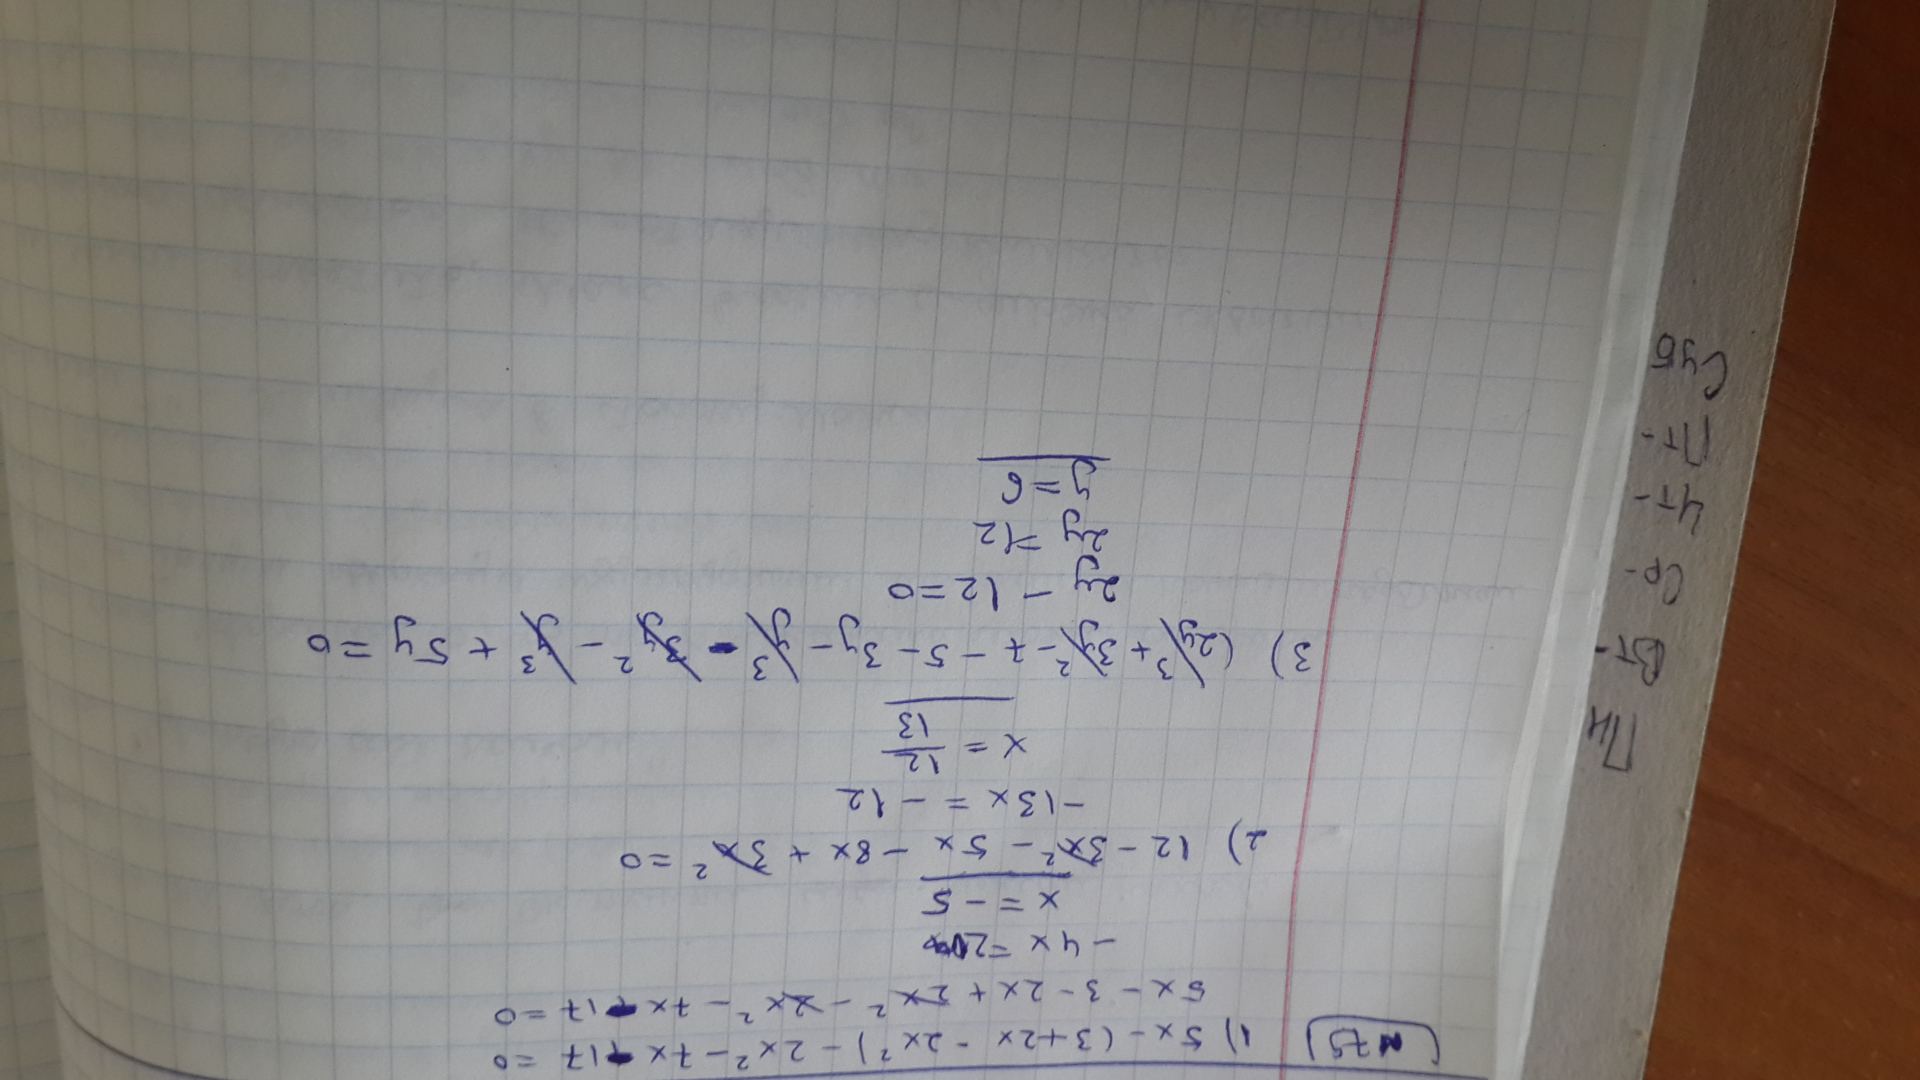 №79) 1) 5x - (3 + 2x - 2x²) - 2x² - 7x - 17 = 0
5x - 3 - 2x + 2x² - 2x² - 7x - 17 = 0
-4x = 20
x = -5
2) 12 - 3x² - 5x - 8x + 3x² = 0
-13x = -12
x = 12/13
3) (2y³ + 3y² - 7 - 5 - 3y - y³ - 3y² - y³ + 5y = 0
2y - 12 = 0
2y = 12
y = 6
Пн
Вт-
Ср-
Чт-
Пт-
Суб